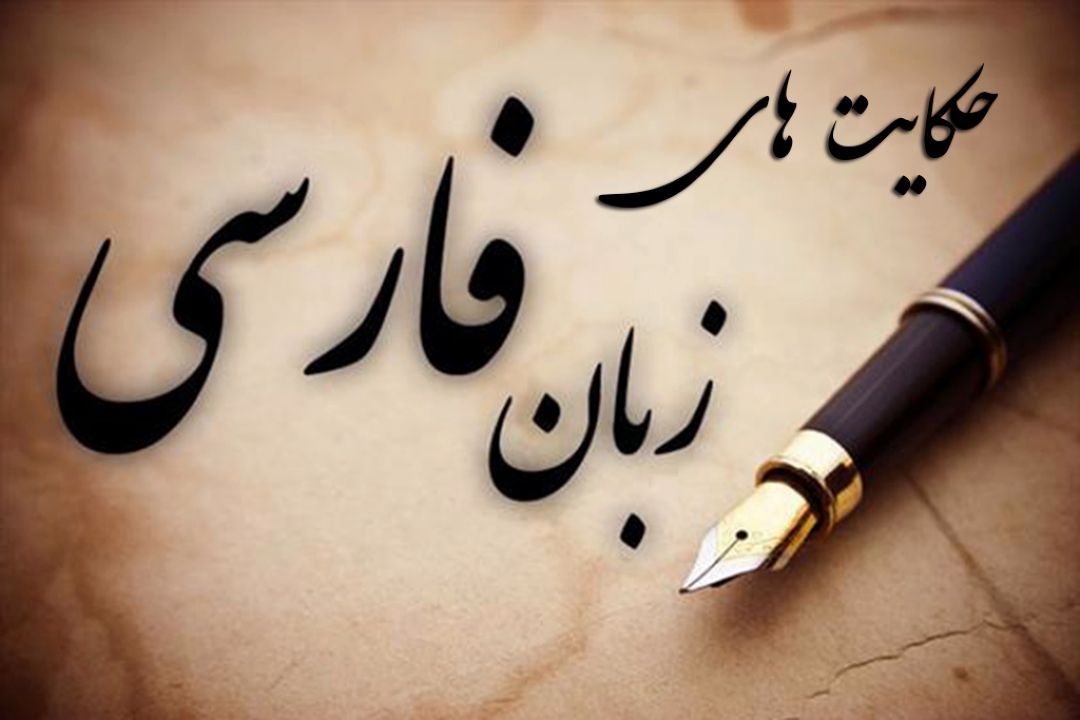 حکایت های
زبان فارسی